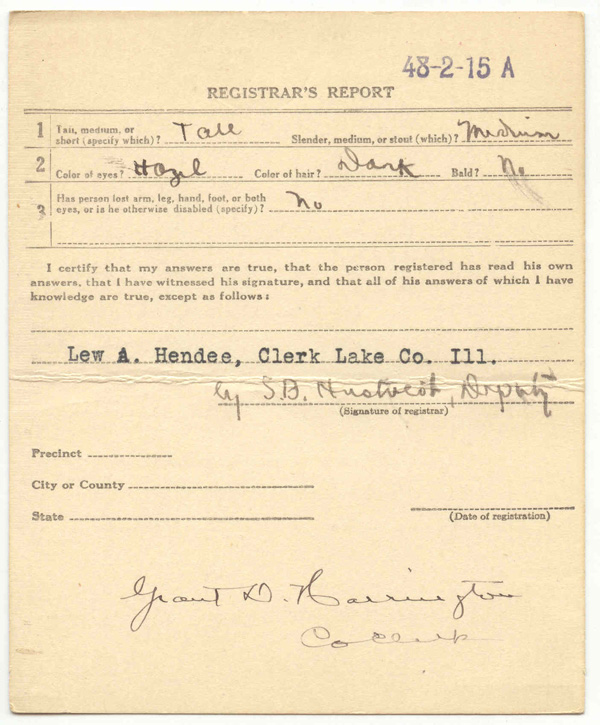 48-2-15 A
REGISTRAR'S REPORT
1 Tall, medium, or short (specify which)? Tall Slender, medium, or stout (which)? Medium
2 Color of eyes? Hazel Color of hair? Dark Bald? No
3 Has person lost arm, leg, hand, foot, or both eyes, or is he otherwise disabled (specify)? No
I certify that my answers are true, that the person registered has read his own
answers, that I have witnessed his signature, and that all of his answers of which I have
knowledge are true, except as follows:
Lew A. Hendee, Clerk Lake Co. Ill.
by S.B. Deputy
(Signature of registrar)
Precinct
City or County
State
(Date of registration)
Grant D. Harrington
Co Clerk